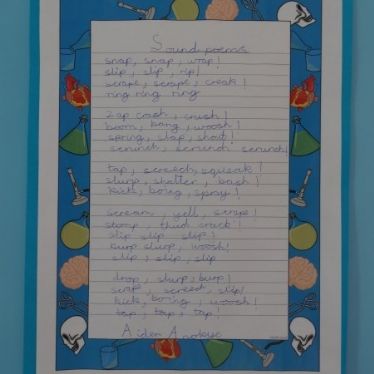 Sound poems
snap, snap, wop!
slip, slip, rip!
scrape, scrape, creak!
ring ring ring
zap crash, crush!
boom, bang, woosh!
spring, slap, shout!
scrunch, scrunch scrunch!
tap, screech, squeak!
slurp, shatter, bash!
kick, boing, spray!
scream, yell, scrape!
stomp, thud crack!
slip slip slip!
burp slurp, woosh!
slip, slip, slip
drop, slurp, burp!
scrap, screech, slip!
kick, boring, woosh!
tap, tap, tap!
Aiden